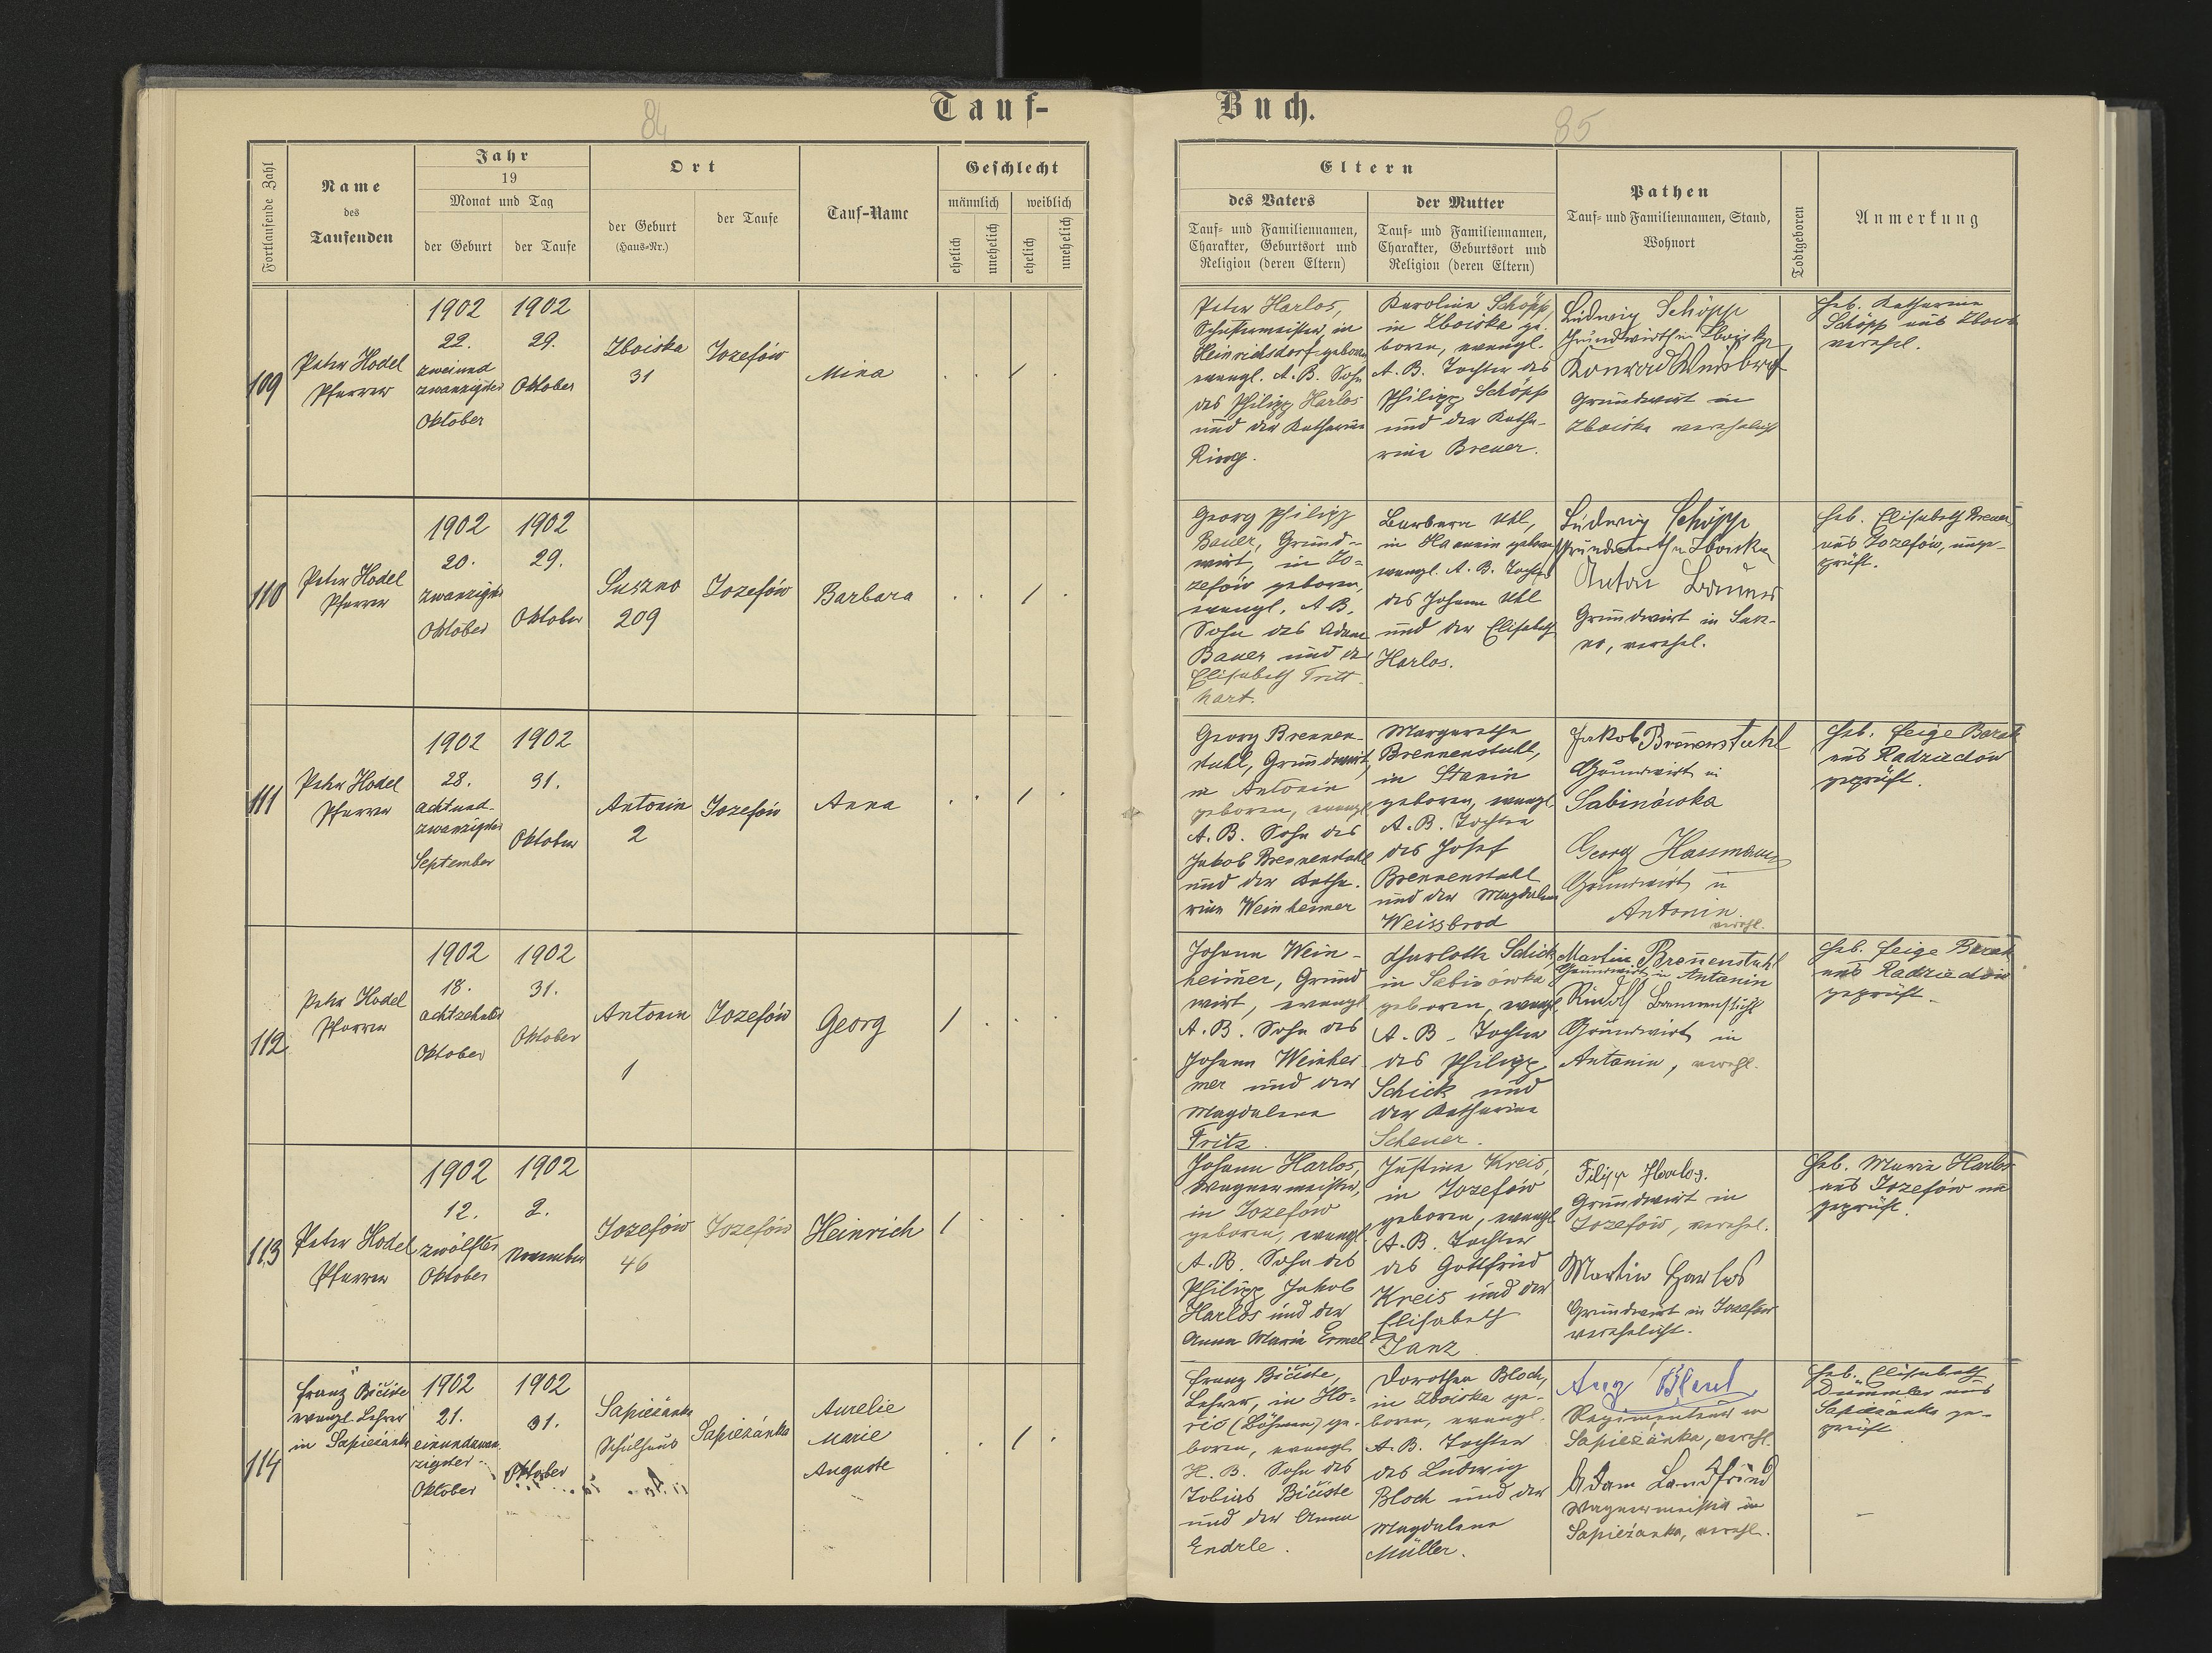 84
Tauf-
Fortlaufende Zahl
Name
des
Taufenden
Jahr
19
Monat und Tag
der Geburt
der Taufe
Ort
der Geburt
(Haus-Nr.)
der Taufe
Tauf-Name
Geschlecht
männlich
weiblich
ehelich
unehelich
ehelich
unehelich
109
Peter Hodel
Pfarrer
1902
22.
zweiund
zwanzigster
Oktober
1902
29.
Oktober
Zboiska
31
Jozefów
Mina
/
110
Peter Hodel
Pfarrer
1902
20.
zwanzigster
Oktober
1902
29.
Oktober
Suszno
209
Jozefów
Barbara
/
111
Peter Hodel
Pfarrer
1902
28.
achtund-
zwanzigster
September
1902
31.
Oktober
Antonin
2
Jozefów
Anna
/
112
Peter Hodel
Pfarrer
1902
18.
achtzehnter
Oktober
1902
31.
Oktober
Antonin
1
Jozefów
Georg
/
113
Peter Hodel
Pfarrer
1902
12.
zwölfter
Oktober
1902
2.
November
Jozefów
46
Jozefów
Heinrich
/
114
Franz Bičište
evangl. Lehrer
in Sapieżanka
1902
21.
einundzwan-
zigster
Oktober
1902
31.
Oktober
Sapieżanka
Schulhaus
Sapieżanka
Aurelie
Marie
Auguste
/
Buch.
85
Eltern
des Vaters
Tauf- und Familiennamen,
Charakter, Geburtsort und
Religion (deren Eltern)
der Mutter
Tauf- und Familiennamen,
Charakter, Geburtsort und
Religion (deren Eltern)
Pathen
Tauf- und Familiennamen, Stand,
Wohnort
Todtgeboren
Anmerkung
Peter Harlos,
Schustermeister, in
Heinrichsdorf geboren
evangl. A. B. Sohn
des Philipp Harlos
und der Katharina
Ring.
Karolina Schöpp,
in Zboiska ge-
boren, evangl.
A. B. Tochter des
Philipp Schöpp
und der Katha-
rina Breuer.
Ludwig Schöpp
Grundwirth in Zboiska
Konrad
Grundwirt in
Zboiska verehelicht
Heb. Katharina
Schöpp aus Zboiska
verehel.
Georg Philipp
Bauer, Grund-
wirt, in Jo-
zefów geboren,
evangl. A. B.
Sohn des Adam
Bauer und der
Elisabeth Tritt-
hart.
Barbara Uhl,
in Hanunin geboren
evangl. A. B. Tochter
des Johann Uhl
und der Elisabeth
Harlos.
Ludwig Schöpp
Grundwirth in Zboiska
Anton
Grundwirt in Susz-
no, verehel.
Heb. Elisabeth Breuer
aus Jozefów, unge-
prüft.
Georg Brennen-
stuhl, Grundwirt,
in Antonin
geboren, evangl.
A. B. Sohn des
Jakob Brennenstuhl
und der Katha-
rina Weinheimer
Margaretha
Brennenstuhl,
in Stanin
geboren, evangl.
A. B. Tochter
des Josef
Brennenstuhl
und der Magdalena
Weissbrod
Jakob Brennenstuhl
Grundwirt in
Sabinówka
Georg Hassmann
Grundwirt in
Antonin
verehl.
Heb. Feige Barak
aus Radziechów
geprüft.
Johann Wein-
heimer, Grund
wirt, evangl.
A. B. Sohn des
Johann Weinhei-
mer und der
Magdalena
Fritz.
Charlotte Schick,
in Sabinówka
geboren, evangl.
A. B. Tochter
des Philipp
Schick und
der Katharina
Scheuer.
Martin Brennenstuhl
Grundwirt in Antonin
Rudolf Brennenstuhl
Grundwirt in
Antonin, verehl.
Heb. Feige Barak
aus Radziechów
geprüft.
Johann Harlos,
Wagnermeister,
in Jozefów
geboren, evangl.
A. B. Sohn des
Philipp Jakob
Harlos und der
Anna Maria Ermel
Justina Kreis,
in Jozefów
geboren, evangl.
A. B. Tochter
des Gottfried
Kreis und der
Elisabeth
Janz.
Filipp Harlos.
Grundwirt in
Jozefów, verehel.
Martin Harlos
Grundwirt in Jozefów
verehelicht.
Heb. Maria Harlos
aus Jozefów un
geprüft.
Franz Bičište,
Lehrer, in Ho-
ric (Böhmen) ge-
boren, evangl.
H. B. Sohn des
Tobias Bičište
und der Anna
Endrle.
Dorothea Bloch,
in Zboiska ge-
boren, evangl.
A. B. Tochter
des Ludwig
Bloch und der
Magdalena
Müller.
Aug
in
Sapieżanka, verehl.
Adam Landfried
Wagnermeister in
Sapieżanka, verehl.
Heb. Elisabeth
Dümmler aus
Sapieżanka ge-
prüft